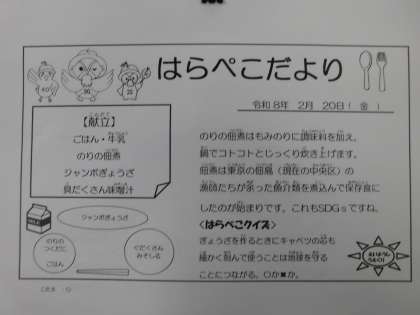 はらぺこだより
令和8年 2月 20日(金)
【献立】
ごはん・牛乳
のりの佃煮
ジャンボぎょうざ
具だくさん味噌汁
のりの佃煮はもみのりに調味料を加え、
鍋でコトコトとじっくり炊き上げます。
佃煮は東京の佃島(現在の中央区)の
漁師たちが余った魚介類を煮込んで保存食に
したのが始まりです。これもSDGsですね。
<はらぺこクイズ>
ぎょうざを作るときにキャベツの芯も
細かく刻んで使うことは地球を守る
ことにつながる。〇か✖か。
ジャンボぎょうざ
のりの
つくだに
ごはん
ぐだくさん
みそしる